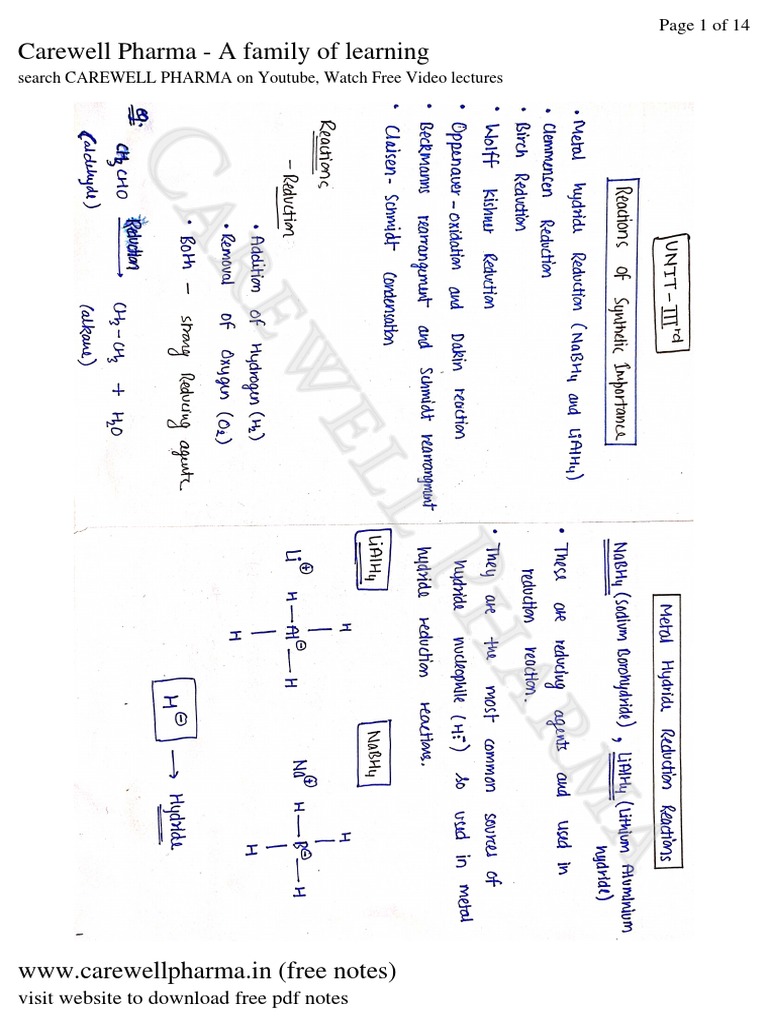 Page 1 of 14
Carewell Pharma - A family of learning
search CAREWELL PHARMA on Youtube, Watch Free Video lectures
UNIT-IIIrd
Reactions of Synthetic Importance
• Metal hydride Reduction (NaBH4 and LiAlH4)
• Clemmensen Reduction
• Birch Reduction
• Wolff Kishner Reduction
• Oppenauer-oxidation and Dakin reaction
• Beckmanns rearrangement and Schmidt rearrangmint
• Claisen-Schmidt Condensation
Reactions
- Reduction
• Addition of Hydrogen (H2)
• Removal of Oxygen (O2)
• Both - strong Reducing agents
eg: CH3CHO Reduction → CH3-CH3 + H2O
(aldehyde) (alkane)
Metal Hydride Reduction Reactions
NaBH4 (Sodium Borohydride), LiAlH4 (Lithium Aluminium
hydride)
• These are reducing agents and used in
reduction reaction.
• They are the most common sources of
hydride nucleophile (H:⁻) so used in metal
hydride reduction reactions.
LiAlH4 NaBH4
H H
Li⊕ H-Al⊖-H Na⊕ H-B⊖-H
H H
H⊖ → Hydride
CAREWELL PHARMA
www.carewellpharma.in (free notes)
visit website to download free pdf notes